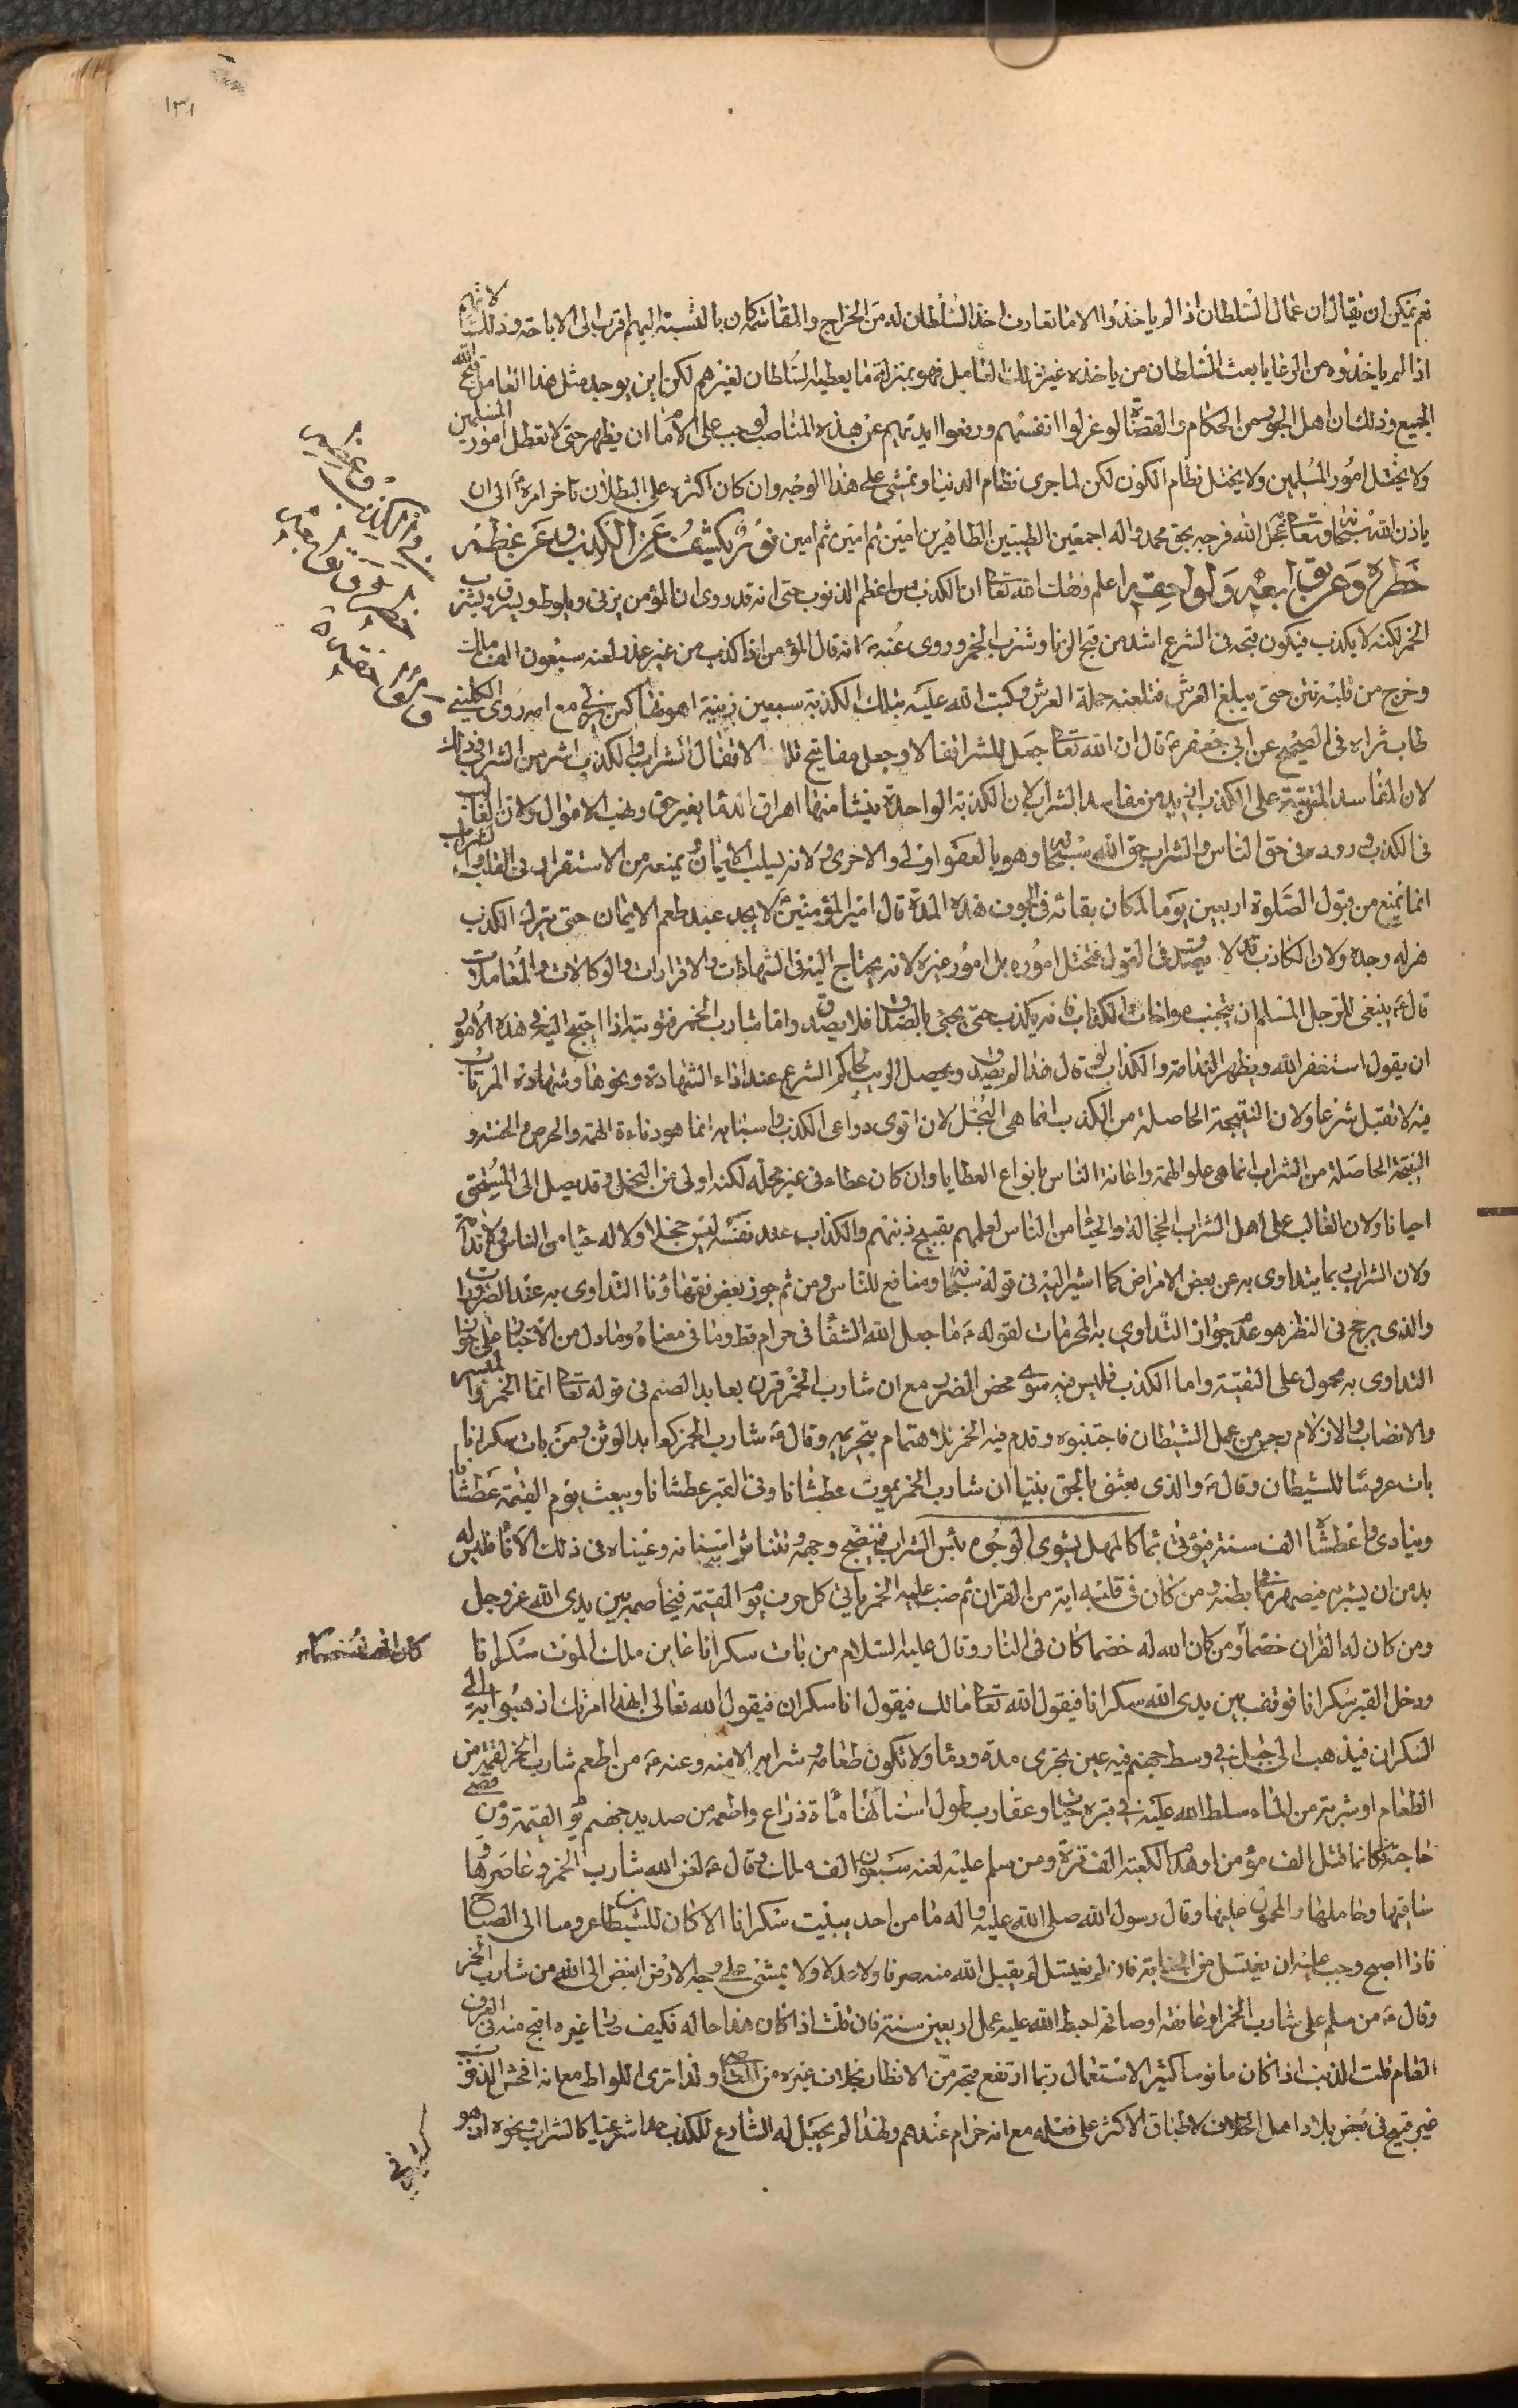 ١٣١
نعم يمكن ان يقال ان عمال السلطان اذا لم ياخذوا الا ما تعارف اخذ السلطان له من الخراج والمقاسمة كان بالنسبة اليهم اقرب الى الاباحة وذلك لانهم
اذا لم ياخذوه من الرعايا بعث السلطان من ياخذه غير ذلك العامل فهو بمنزلة ما يعطيه السلطان لغيرهم لكن اين يوجد مثل هذا العامل
الجميع وذلك ان اهل الجور من الحكام والقضاة لو عزلوا انفسهم ورفعوا ايديهم عن هذه المناصب لوجب على الامام ان يظهر حتى لا تعطل امور المسلمين
ولا يختل امور المسلمين ولا يختل نظام الكون لكن لما جرى نظام الدنيا وتمشى على هذا الوجه وان كان اكثره على البطلان تاخر امره الى ان
ياذن الله سبحانه وتعالى عجل الله فرجه بحق محمد واله اجمعين الطيبين الطاهرين امين ثم امين ثم امين نور يكشف عن الكذب وعن عظم
خطره وعن اعلم وفقك الله تعالى ان الكذب من اعظم الذنوب حتى انه قد روى ان المؤمن يزنى ويلوط ويسرق ويشرب
الخمر لكنه لا يكذب فيكون قبحه فى الشرع اشد من قبح الزنا وشرب الخمر وروى عنه انه قال المؤمن اذا كذب من غير عذر لعنه سبعون الف ملك
وخرج من قلبه نتن حتى يبلغ العرش فتلعنه حملة العرش وكتب الله عليه بتلك الكذبة سبعين زنية اهونها كمن يزنى مع امه روى الكلينى
طاب ثراه فى الصحيح عن ابى جعفر قال ان الله تعالى جعل للشر اقفالا وجعل مفاتيح تلك الاقفال الشراب والكذب اشر من الشراب وذلك
لان المفاسد المترتبة على الكذب ازيد من مفاسد الشراب لان الكذبة الواحدة ينشا منها اهراق الدماء بغير حق ونهب الاموال ولان الغالب
فى الكذب وروده فى حق الناس والشراب حق الله سبحانه وهو بالعفو اولى والاخرى ولانه يسلب الايمان ويمنعه من الاستقرار فى القلب والشراب
انما يمنع من قبول الصلوة اربعين يوما لمكان بقائه فى الجوف هذه المدة قال امير المؤمنين لا يجد عبد طعم الايمان حتى يترك الكذب
هزله وجده ولان الكاذب لا فى القول فتختل اموره بل امور غيره لانه يحتاج اليه فى الشهادات والاقرارات والوكالات والمعاملات
قال ينبغى للرجل المسلم ان يجتنب مواخاة الكذاب فانه يكذب حتى يجئ بالصدق فلا يصدق واما شارب الخمر فتوبته اذا احتيج اليه فى هذه الامور
ان يقول استغفر الله ويظهر الندامة والكذاب لو قال هذا لم يصدق ويحصل الريب لحاكم الشرع عند اداء الشهادة ونحوها وشهادة المرتاب
فيه لا تقبل شرعا ولان النتيجة الحاصلة من الكذب انما هى البخل لان اقوى دواعى الكذب واسبابه انما هو دناءة الهمة والحرص والخسة و
النتيجة الحاصلة من الشراب انما هى علو الهمة واعانة الناس بانواع العطايا وان كان عطاء فى غير محله لكنه اولى من البخل وقد يصل الى المستحق
احيانا ولان الغالب على اهل الشراب الخجالة والحيا من الناس لعلمهم بقبيح ذنبهم والكذاب عند نفسه ليس خجلا ولا له حيا من الناس ولا ندامة
ولان الشراب مما يتداوى به عن بعض الامراض كما اشير اليه فى قوله سبحانه ومنافع للناس ومن ثم جوز بعض فقهاؤنا التداوى به عند الضرورات
والذى يرجح فى النظر هو عدم جواز التداوى بالمحرمات لقوله ما جعل الله الشفا فى حرام قط وما فى معناه وما دل من الاخبار على جواز
التداوى به محمول على التقية واما الكذب فليس فيه سوى محض الضرر مع ان شارب الخمر قرن بعابد الصنم فى قوله تعالى انما الخمر والميسر
والانصاب والازلام رجس من عمل الشيطان فاجتنبوه وقدم فيه الخمر للاهتمام بتحريمه وقال شارب الخمر كعابد الوثن ومن بات سكرانا
بات عروسا للشيطان وقال والذى بعثنى بالحق نبيا ان شارب الخمر يموت عطشانا وفى القبر عطشانا ويبعث يوم القيمة عطشانا
وينادى واعطشاه الف سنة فيؤتى بماء كالمهل يشوى الوجوه بئس الشراب فينضج وجهه وتتناثر اسنانه وعيناه فى ذلك الاناء فليس له
بد من ان يشربه فيصهر ما فى بطنه ومن كان فى قلبه اية من القران ثم صب عليه الخمر ياتى كل حرف يوم القيمة فيخاصمه بين يدى الله عز وجل
ومن كان له القران خصما ومن كان الله له خصما كان فى النار وقال عليه السلام من بات سكرانا عاين ملك الموت سكرانا
ودخل القبر سكرانا فوقف بين يدى الله سكرانا فيقول الله تعالى مالك فيقول انا سكران فيقول الله تعالى ابهذا امرتك اذهبوا به الى
السكران فيذهب الى جبل فى وسط جهنم فيه عين تجرى مدة ودما ولا تكون طعامه وشرابه الا منه وعنه من اطعم شارب الخمر لقمة من
الطعام او شربة من الماء سلط الله عليه فى قبره حيات وعقارب طول اسنانها مائة ذراع واطعمه من صديد جهنم يوم القيمة ومن قضى
حاجته فكانما قتل الف مؤمن او هدم الكعبة الف مرة ومن سلم عليه لعنه سبعون الف ملك وقال لعن الله شارب الخمر وعاصرها و
ساقيها وحاملها والمحمول عليها وقال رسول الله صلى الله عليه واله ما من احد يبيت سكرانا الا كان للشيطان عروسا الى الصباح
فاذا اصبح وجب عليه ان يغتسل من الجنابة فان لم يغتسل لم يقبل الله منه صرفا ولا عدلا ولا يمشى على وجه الارض ابغض الى الله من شارب الخمر
وقال من سلم على شارب الخمر او عانقه او صافحه احبط الله عليه عمل اربعين سنة فان قلت اذا كان هذا حاله فكيف صار غيره اقبح منه فى العرف
العام قلت الذنب اذا كان مانوسا كثير الاستعمال ربما ارتفع قبحه من الانظار بخلاف غيره من ولذا ترى اللواط مع انه افحش الذنوب
غير قبيح فى بعض بلاد اهل الخلاف لاطباق الاكثر على فعله مع انه حرام عندهم ولهذا لم يجعل له الشارع للكذب حدا شرعيا كالشراب ونحوه اذ هو